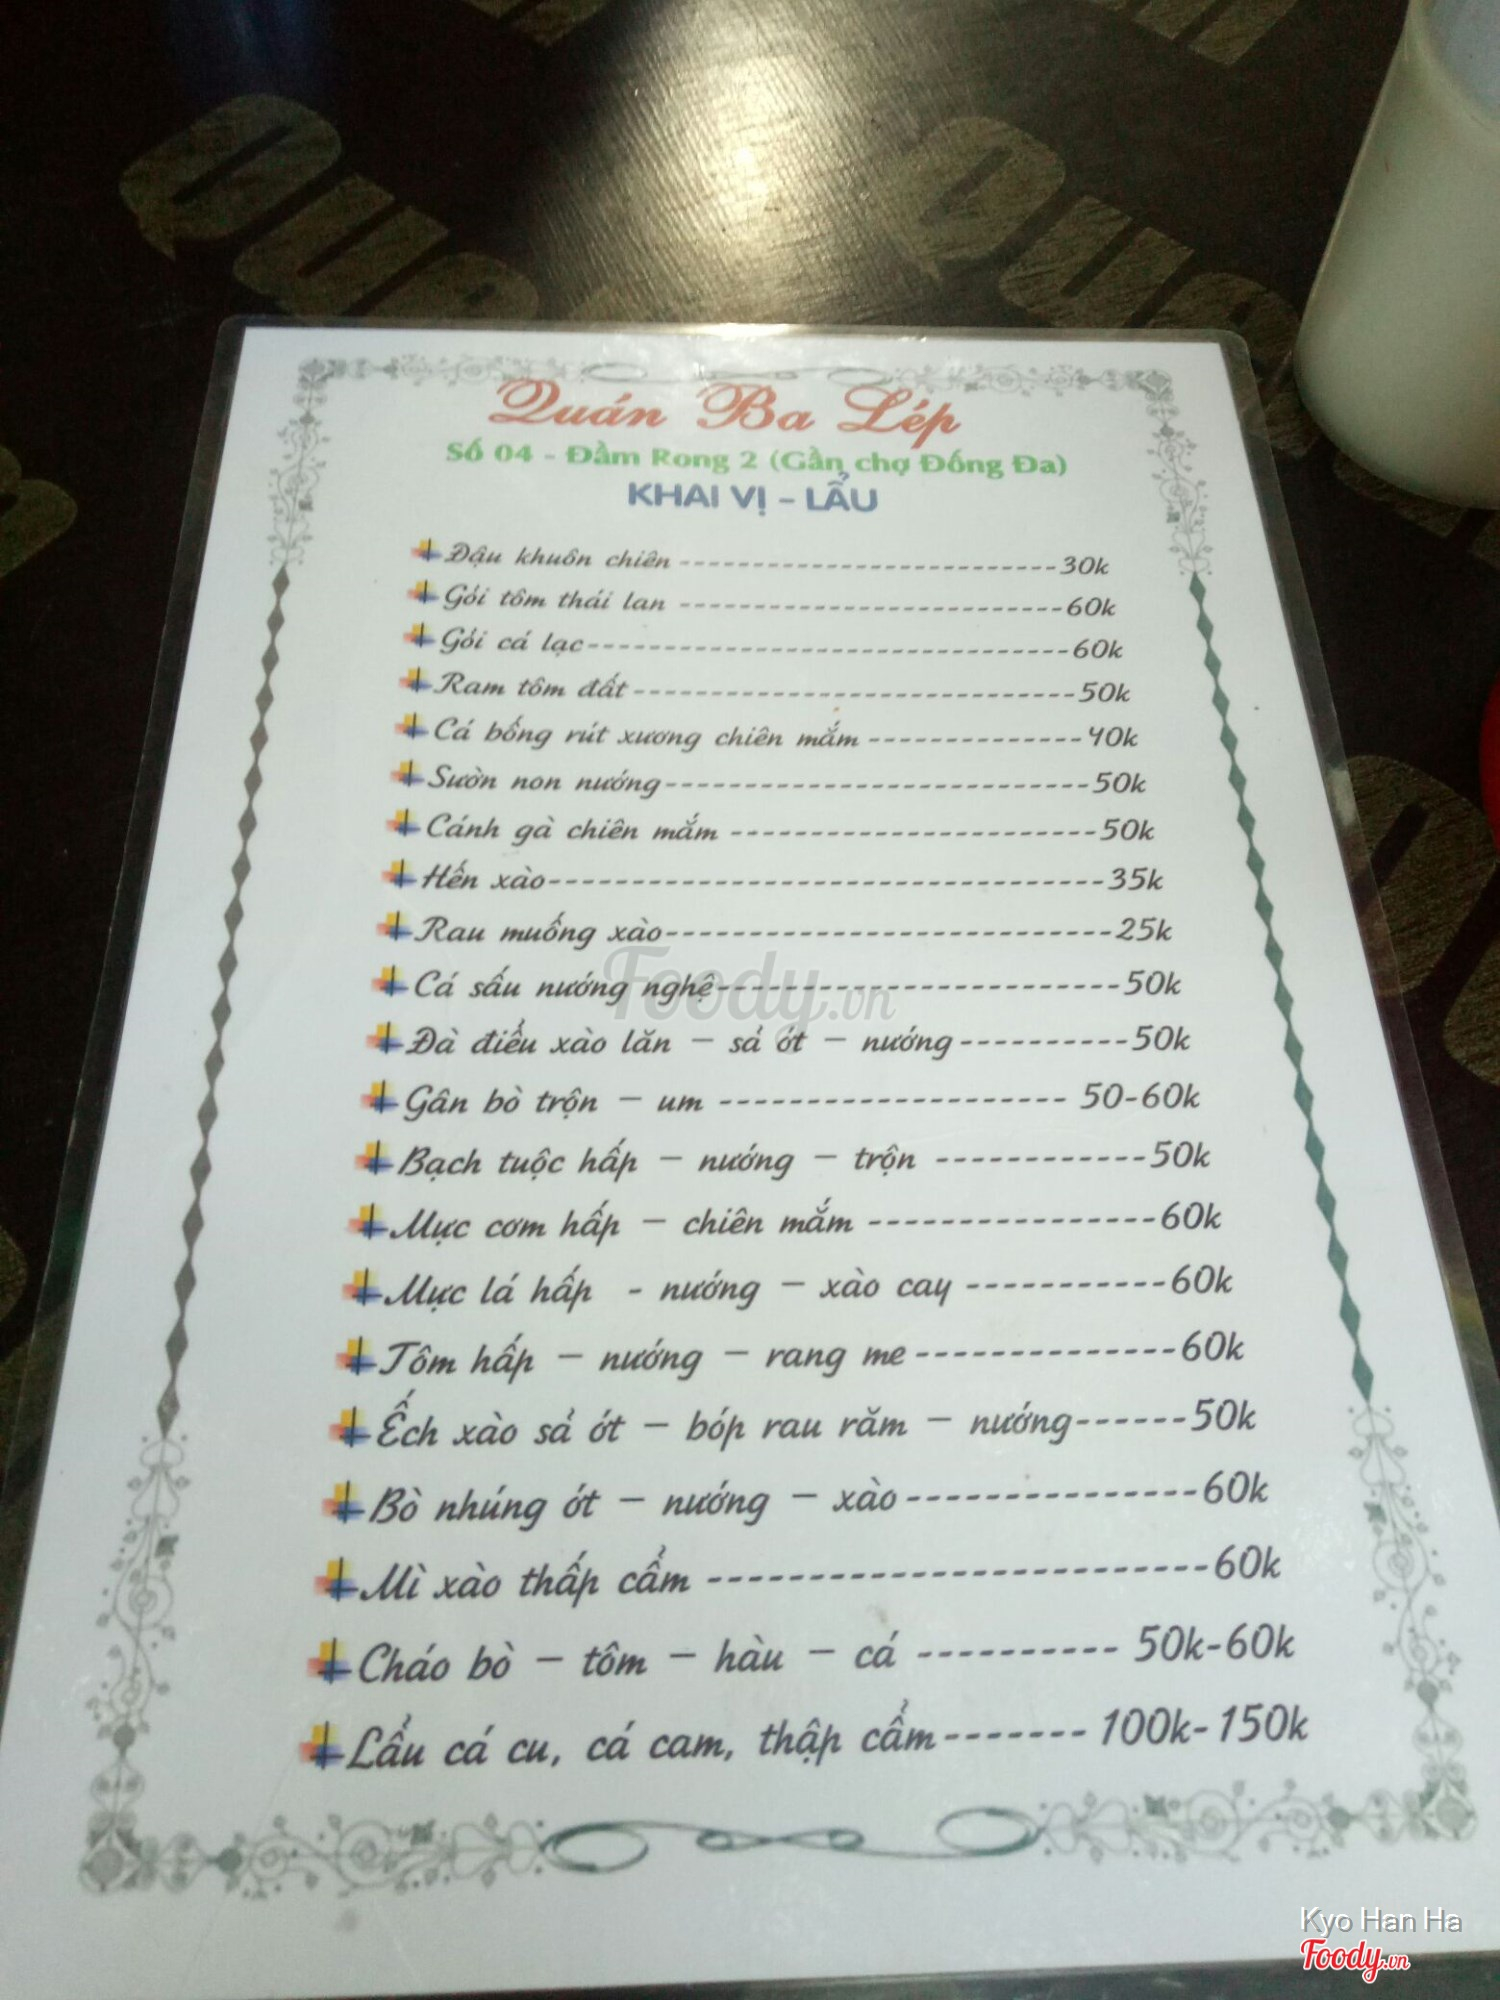 Quán Ba Lép
Số 04 - Đầm Rong 2 (Gần chợ Đống Đa)
KHAI VỊ – LẨU
Đậu khuôn chiên ------------------------30k
Gỏi tôm thái lan ------------------------60k
Gỏi cá lạc------------------------------60k
Ram tôm đất----------------------------50k
Cá bống rút xương chiên mắm --------------40k
Sườn non nướng---------------------------50k
Cánh gà chiên mắm -----------------------50k
Hến xào----------------------------------35k
Rau muống xào---------------------------25k
Cá sấu nướng nghệ------------------------50k
Đà điểu xào lăn – sả ớt – nướng----------50k
Gân bò trộn – um -------------------- 50-60k
Bạch tuộc hấp – nướng – trộn ------------50k
Mực cơm hấp – chiên mắm ----------------60k
Mực lá hấp - nướng – xào cay -----------60k
Tôm hấp – nướng – rang me--------------60k
Ếch xào sả ớt – bóp rau răm – nướng------50k
Bò nhúng ớt – nướng – xào---------------60k
Mì xào thấp cẩm -------------------------60k
Cháo bò – tôm – hàu – cá ---------- 50k-60k
Lẩu cá cu, cá cam, thập cẩm------- 100k-150k
Foody.vn
Kyo Han Ha
Foody.vn